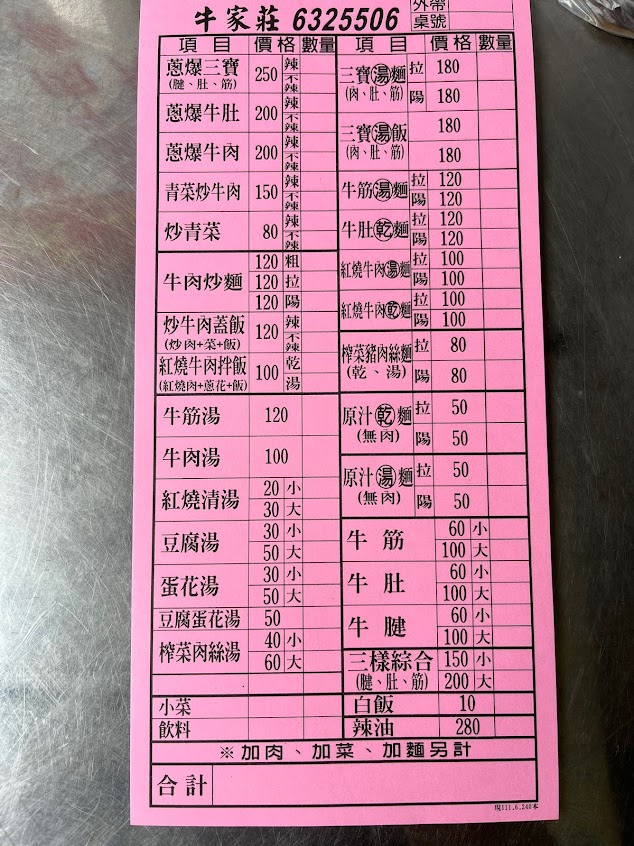 牛家莊 6325506
外帶
桌號
項目 價格 數量
蔥爆三寶 250 辣
(腱、肚、筋) 不辣
蔥爆牛肚 200 辣
不辣
蔥爆牛肉 200 辣
不辣
青菜炒牛肉 150 辣
不辣
炒青菜 80 辣
不辣
牛肉炒麵 120 粗
120 拉
120 陽
炒牛肉蓋飯 120 辣
(炒肉+菜+飯) 不辣
紅燒牛肉拌飯 100 乾
(紅燒肉+蔥花+飯) 湯
牛筋湯 120
牛肉湯 100
紅燒清湯 20 小
30 大
豆腐湯 30 小
50 大
蛋花湯 30 小
50 大
豆腐蛋花湯 50
榨菜肉絲湯 40 小
60 大
小菜
飲料
項目 價格 數量
三寶湯麵 拉 180
(肉、肚、筋) 陽 180
三寶湯飯 180
(肉、肚、筋) 180
牛筋湯麵 拉 120
陽 120
牛肚乾麵 拉 120
陽 120
紅燒牛肉湯麵 拉 100
陽 100
紅燒牛肉乾麵 拉 100
陽 100
榨菜豬肉絲麵 拉 80
(乾、湯) 陽 80
原汁乾麵 拉 50
(無肉) 陽 50
原汁湯麵 拉 50
(無肉) 陽 50
牛筋 60 小
100 大
牛肚 60 小
100 大
牛腱 60 小
100 大
三樣綜合 150 小
(腱、肚、筋) 200 大
白飯 10
辣油 280
※加肉、加菜、加麵另計
合計